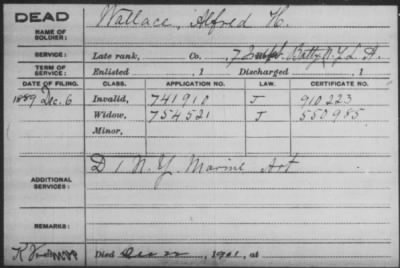 DEAD
NAME OF SOLDIER:
Wallace, Alfred H.
SERVICE:
Late rank, Co. , 7 Batty N.Y. L. A.
TERM OF SERVICE:
Enlisted , 1 Discharged , 1
DATE OF FILING. CLASS. APPLICATION NO. LAW. CERTIFICATE NO.
1889 Dec. 6 Invalid, 741910 J 910223
Widow, 754521 J 550985
Minor,
ADDITIONAL SERVICES:
D 1 N.Y. Marine Art
REMARKS:
Died Dec 22, 1901, at